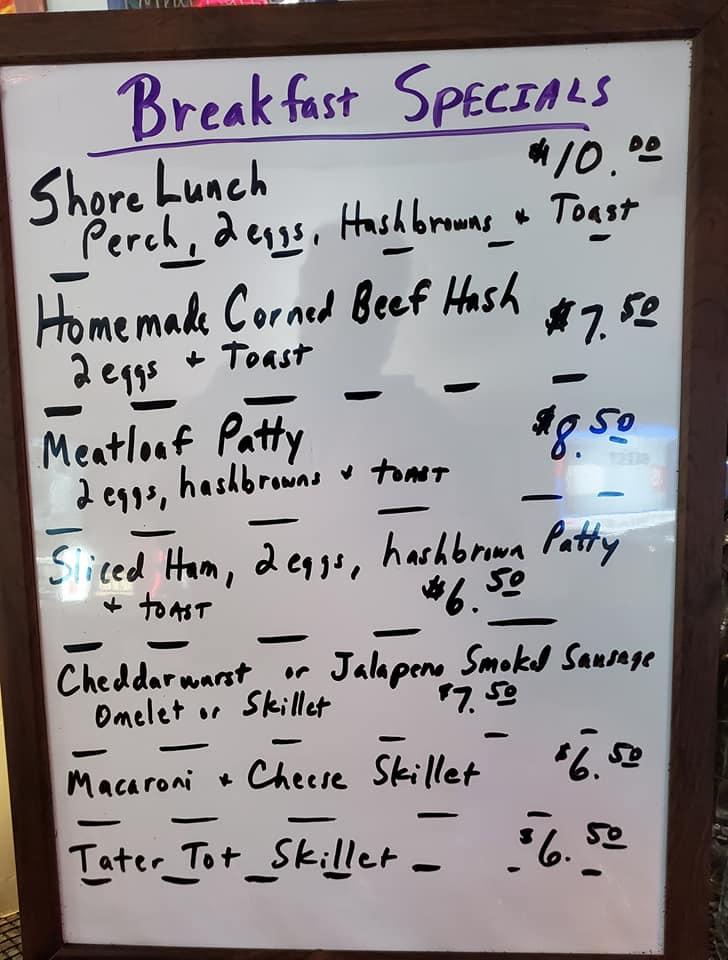 Breakfast SPECIALS
Shore Lunch $10.00
Perch, 2 eggs, Hashbrowns + Toast
Homemade Corned Beef Hash $7.50
2 eggs + Toast
Meatloaf Patty $8.50
2 eggs, hashbrowns + TOAST
Sliced Ham, 2 eggs, hashbrown Patty
+ TOAST $6.50
Cheddarwurst or Jalapeno Smoked Sausage
Omelet or Skillet $7.50
Macaroni + Cheese Skillet $6.50
Tater Tot Skillet $6.50